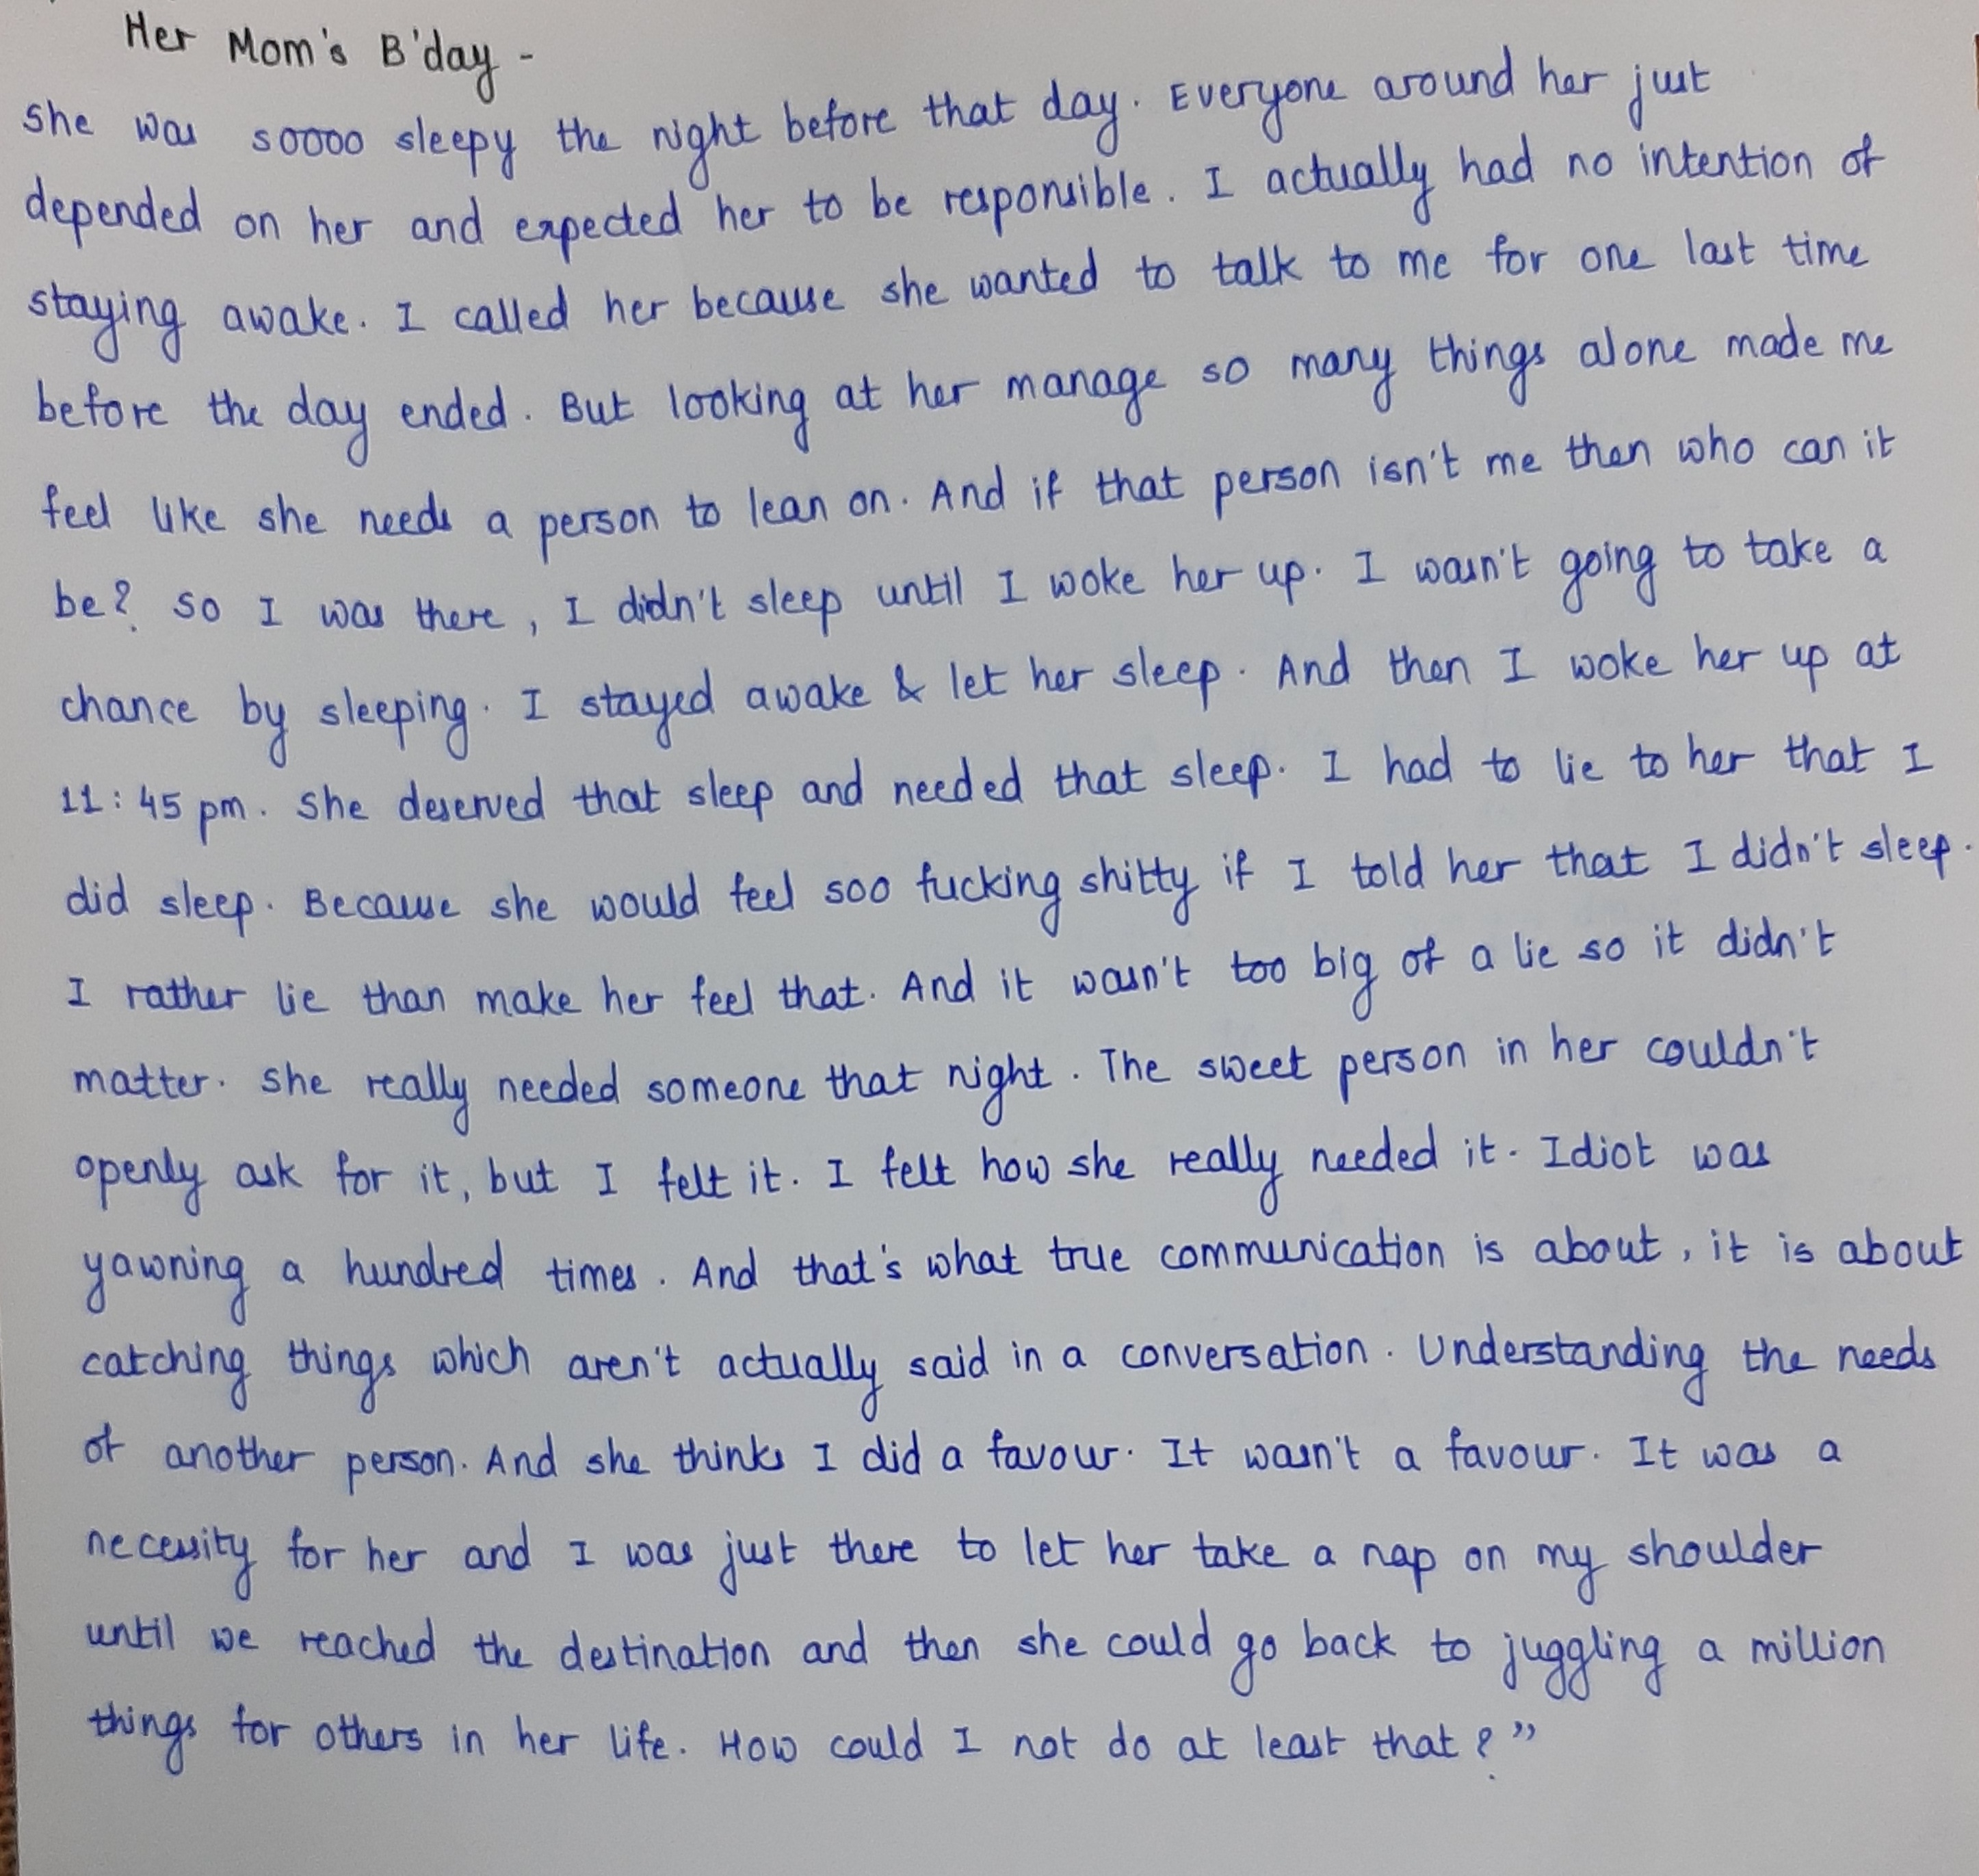 Her Mom's B'day -
She was soooo sleepy the night before that day. Everyone around her just
depended on her and expected her to be responsible. I actually had no intention of
staying awake. I called her because she wanted to talk to me for one last time
before the day ended. But looking at her manage so many things alone made me
feel like she needs a person to lean on. And if that person isn't me then who can it
be? So I was there, I didn't sleep until I woke her up. I wasn't going to take a
chance by sleeping. I stayed awake & let her sleep. And then I woke her up at
11:45 pm. She deserved that sleep and needed that sleep. I had to lie to her that I
did sleep. Because she would feel soo fucking shitty if I told her that I didn't sleep.
I rather lie than make her feel that. And it wasn't too big of a lie so it didn't
matter. She really needed someone that night. The sweet person in her couldn't
openly ask for it, but I felt it. I felt how she really needed it. Idiot was
yawning a hundred times. And that's what true communication is about, it is about
catching things which aren't actually said in a conversation. Understanding the needs
of another person. And she thinks I did a favour. It wasn't a favour. It was a
necessity for her and I was just there to let her take a nap on my shoulder
until we reached the destination and then she could go back to juggling a million
things for others in her life. How could I not do at least that?"